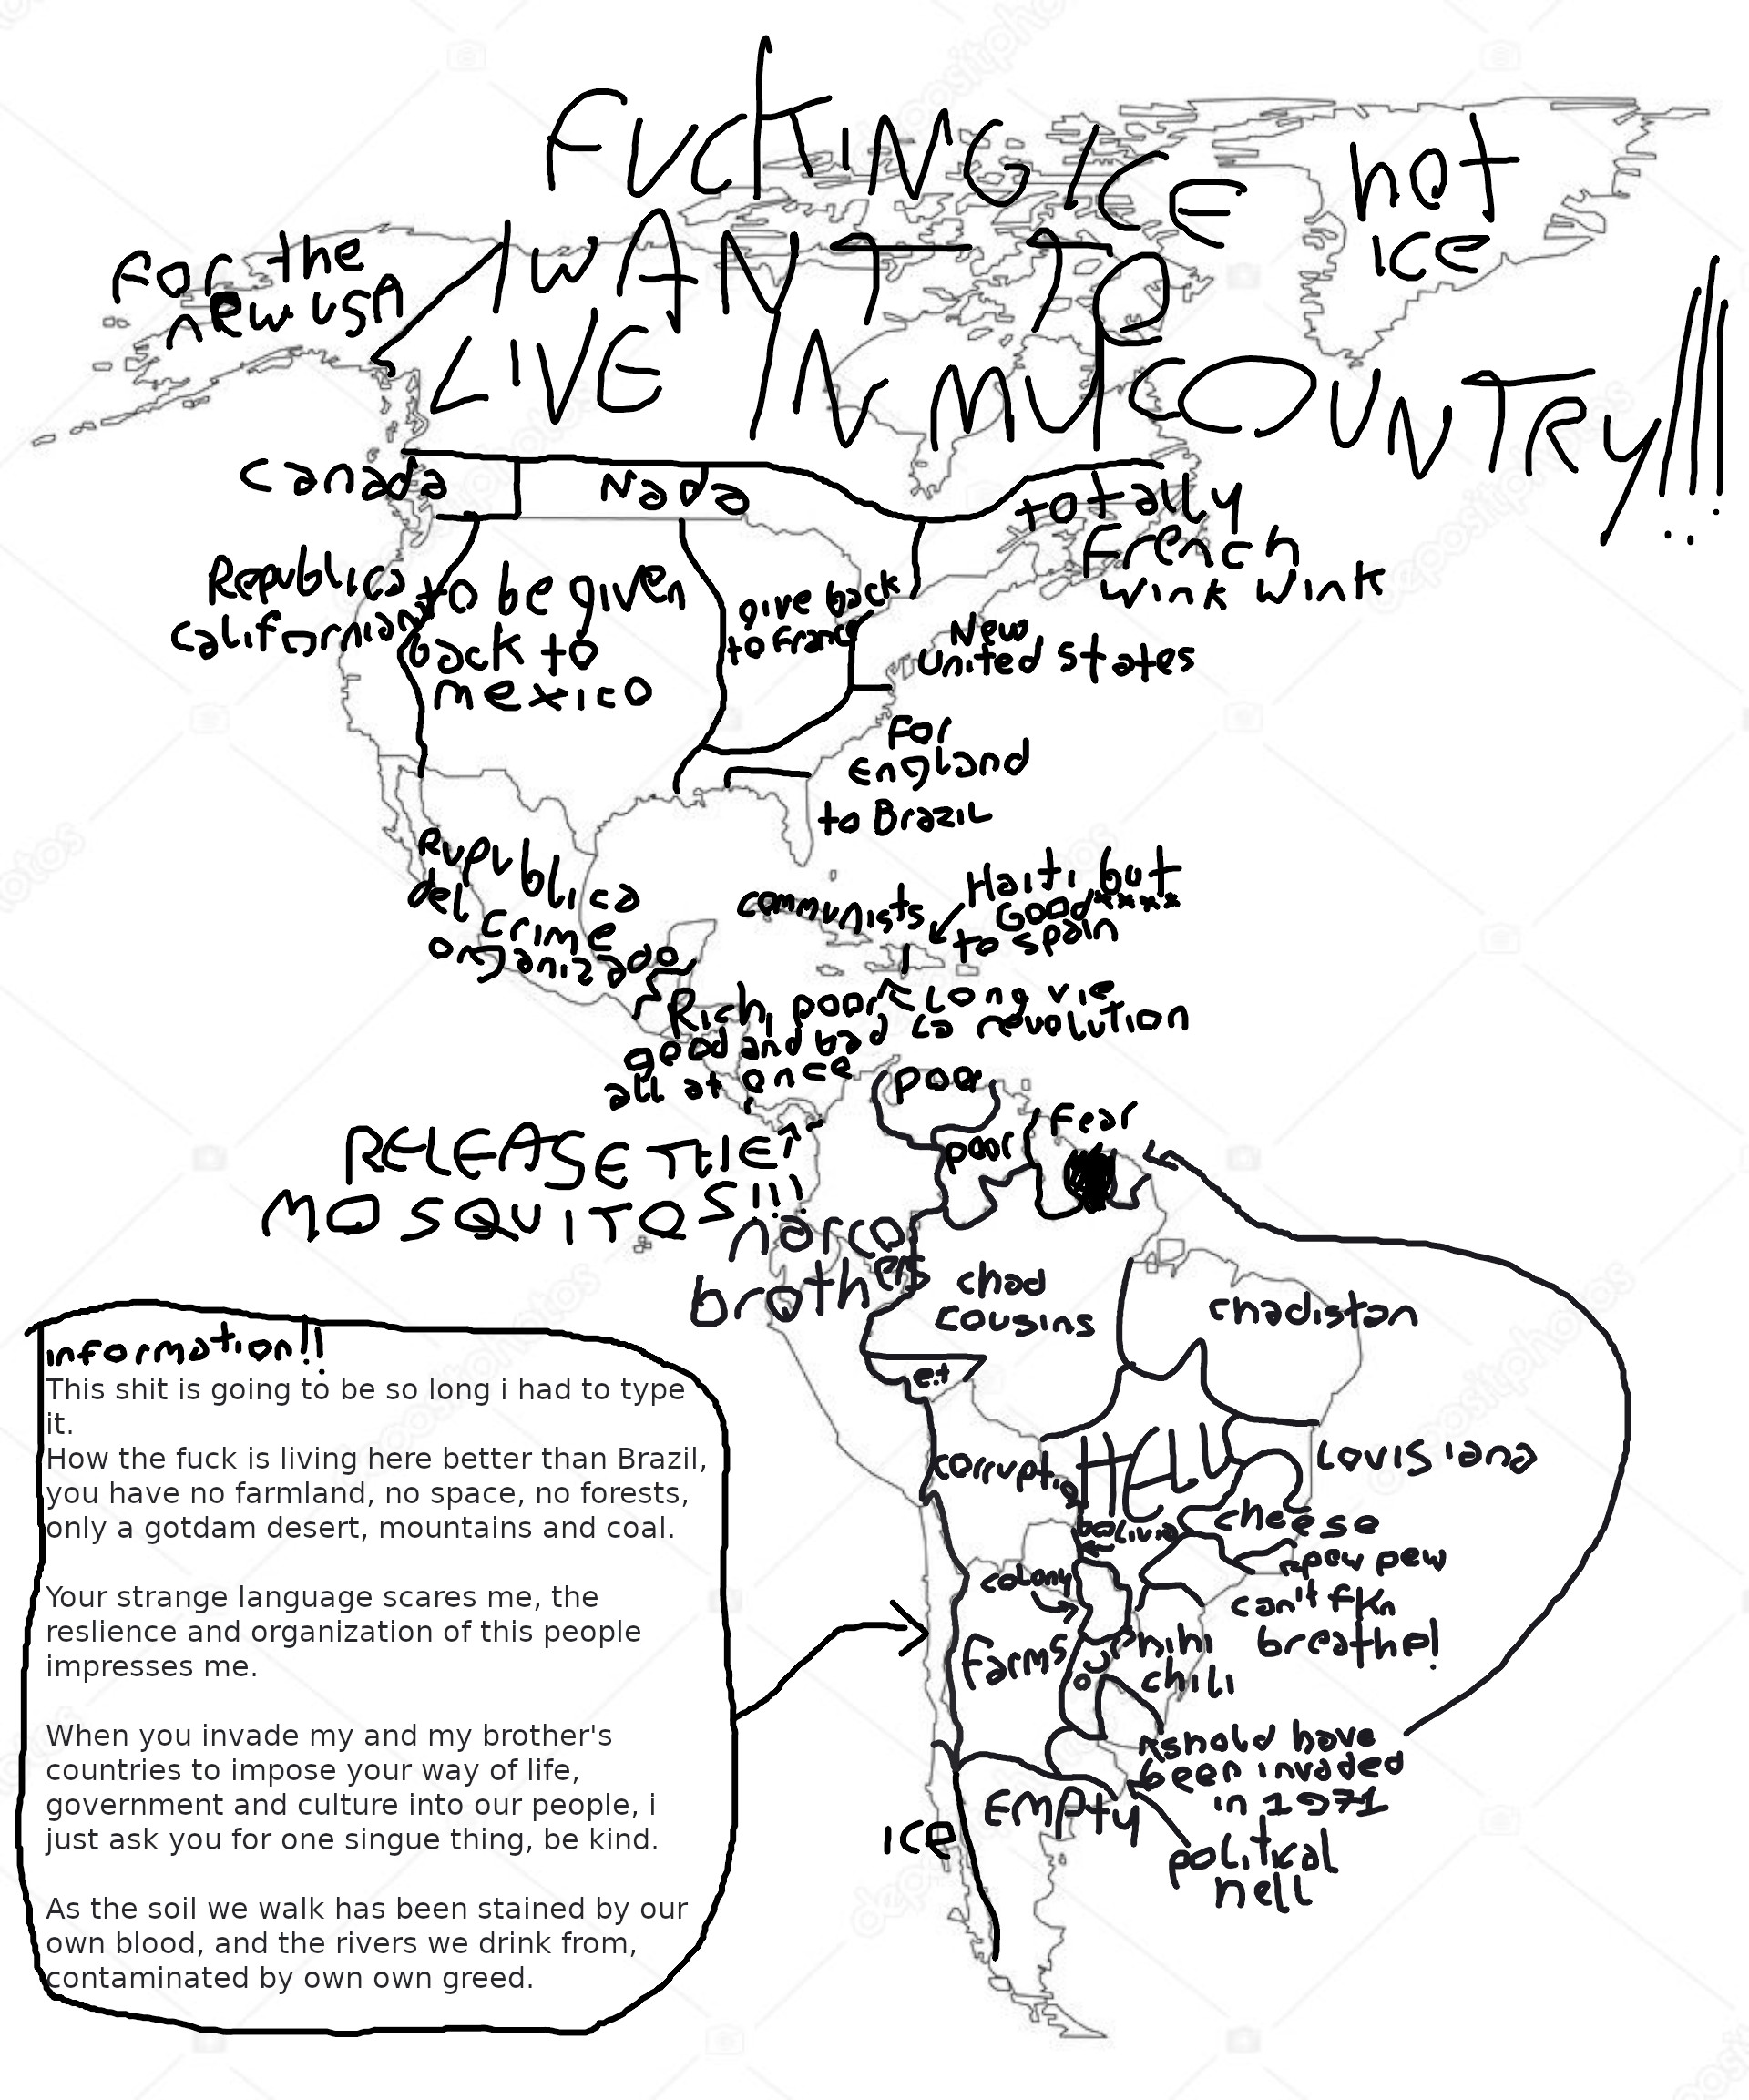 FUCKING ICE
I WANT TO
LIVE IN MY COUNTRY!!!
not
ice
for the
new USA
Canada
Nada
totally
French
wink wink
Republica
californian
to be given
back to
mexico
give back
to France
New
United states
For
England
to Brazil
Rupublica
del
crime
organizado
communists
Haiti but
Good****
to spain
Rich, poor
good and bad
all at once
Long vie
la revolution
poor
poor
Fear
RELEASE THE
MOSQUITOS!!!
narco
brothers
chad
cousins
chadistan
e.t
corruptio
HELL
Louisiana
bolivia
cheese
pew pew
colony
can't fkn
breathe!
farms
mini
chili
should have
been invaded
in 1971
EMPty
political
hell
ice
information!!
This shit is going to be so long i had to type
it.
How the fuck is living here better than Brazil,
you have no farmland, no space, no forests,
only a gotdam desert, mountains and coal.
Your strange language scares me, the
reslience and organization of this people
impresses me.
When you invade my and my brother's
countries to impose your way of life,
government and culture into our people, i
just ask you for one singue thing, be kind.
As the soil we walk has been stained by our
own blood, and the rivers we drink from,
contaminated by own own greed.
depositphotos